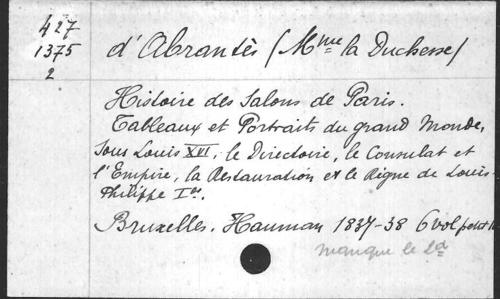 427
1375
2
d'Abrantès (Mme la Duchesse)
Histoire des Salons de Paris.
Tableaux et Portraits du grand Monde,
sous Louis XVI, le Directoire, le Consulat et
l'Empire, la Restauration et le Règne de Louis-
Philippe Ier.
Bruxelles. Hauman 1837-38 6 vol petit
manque le 2d